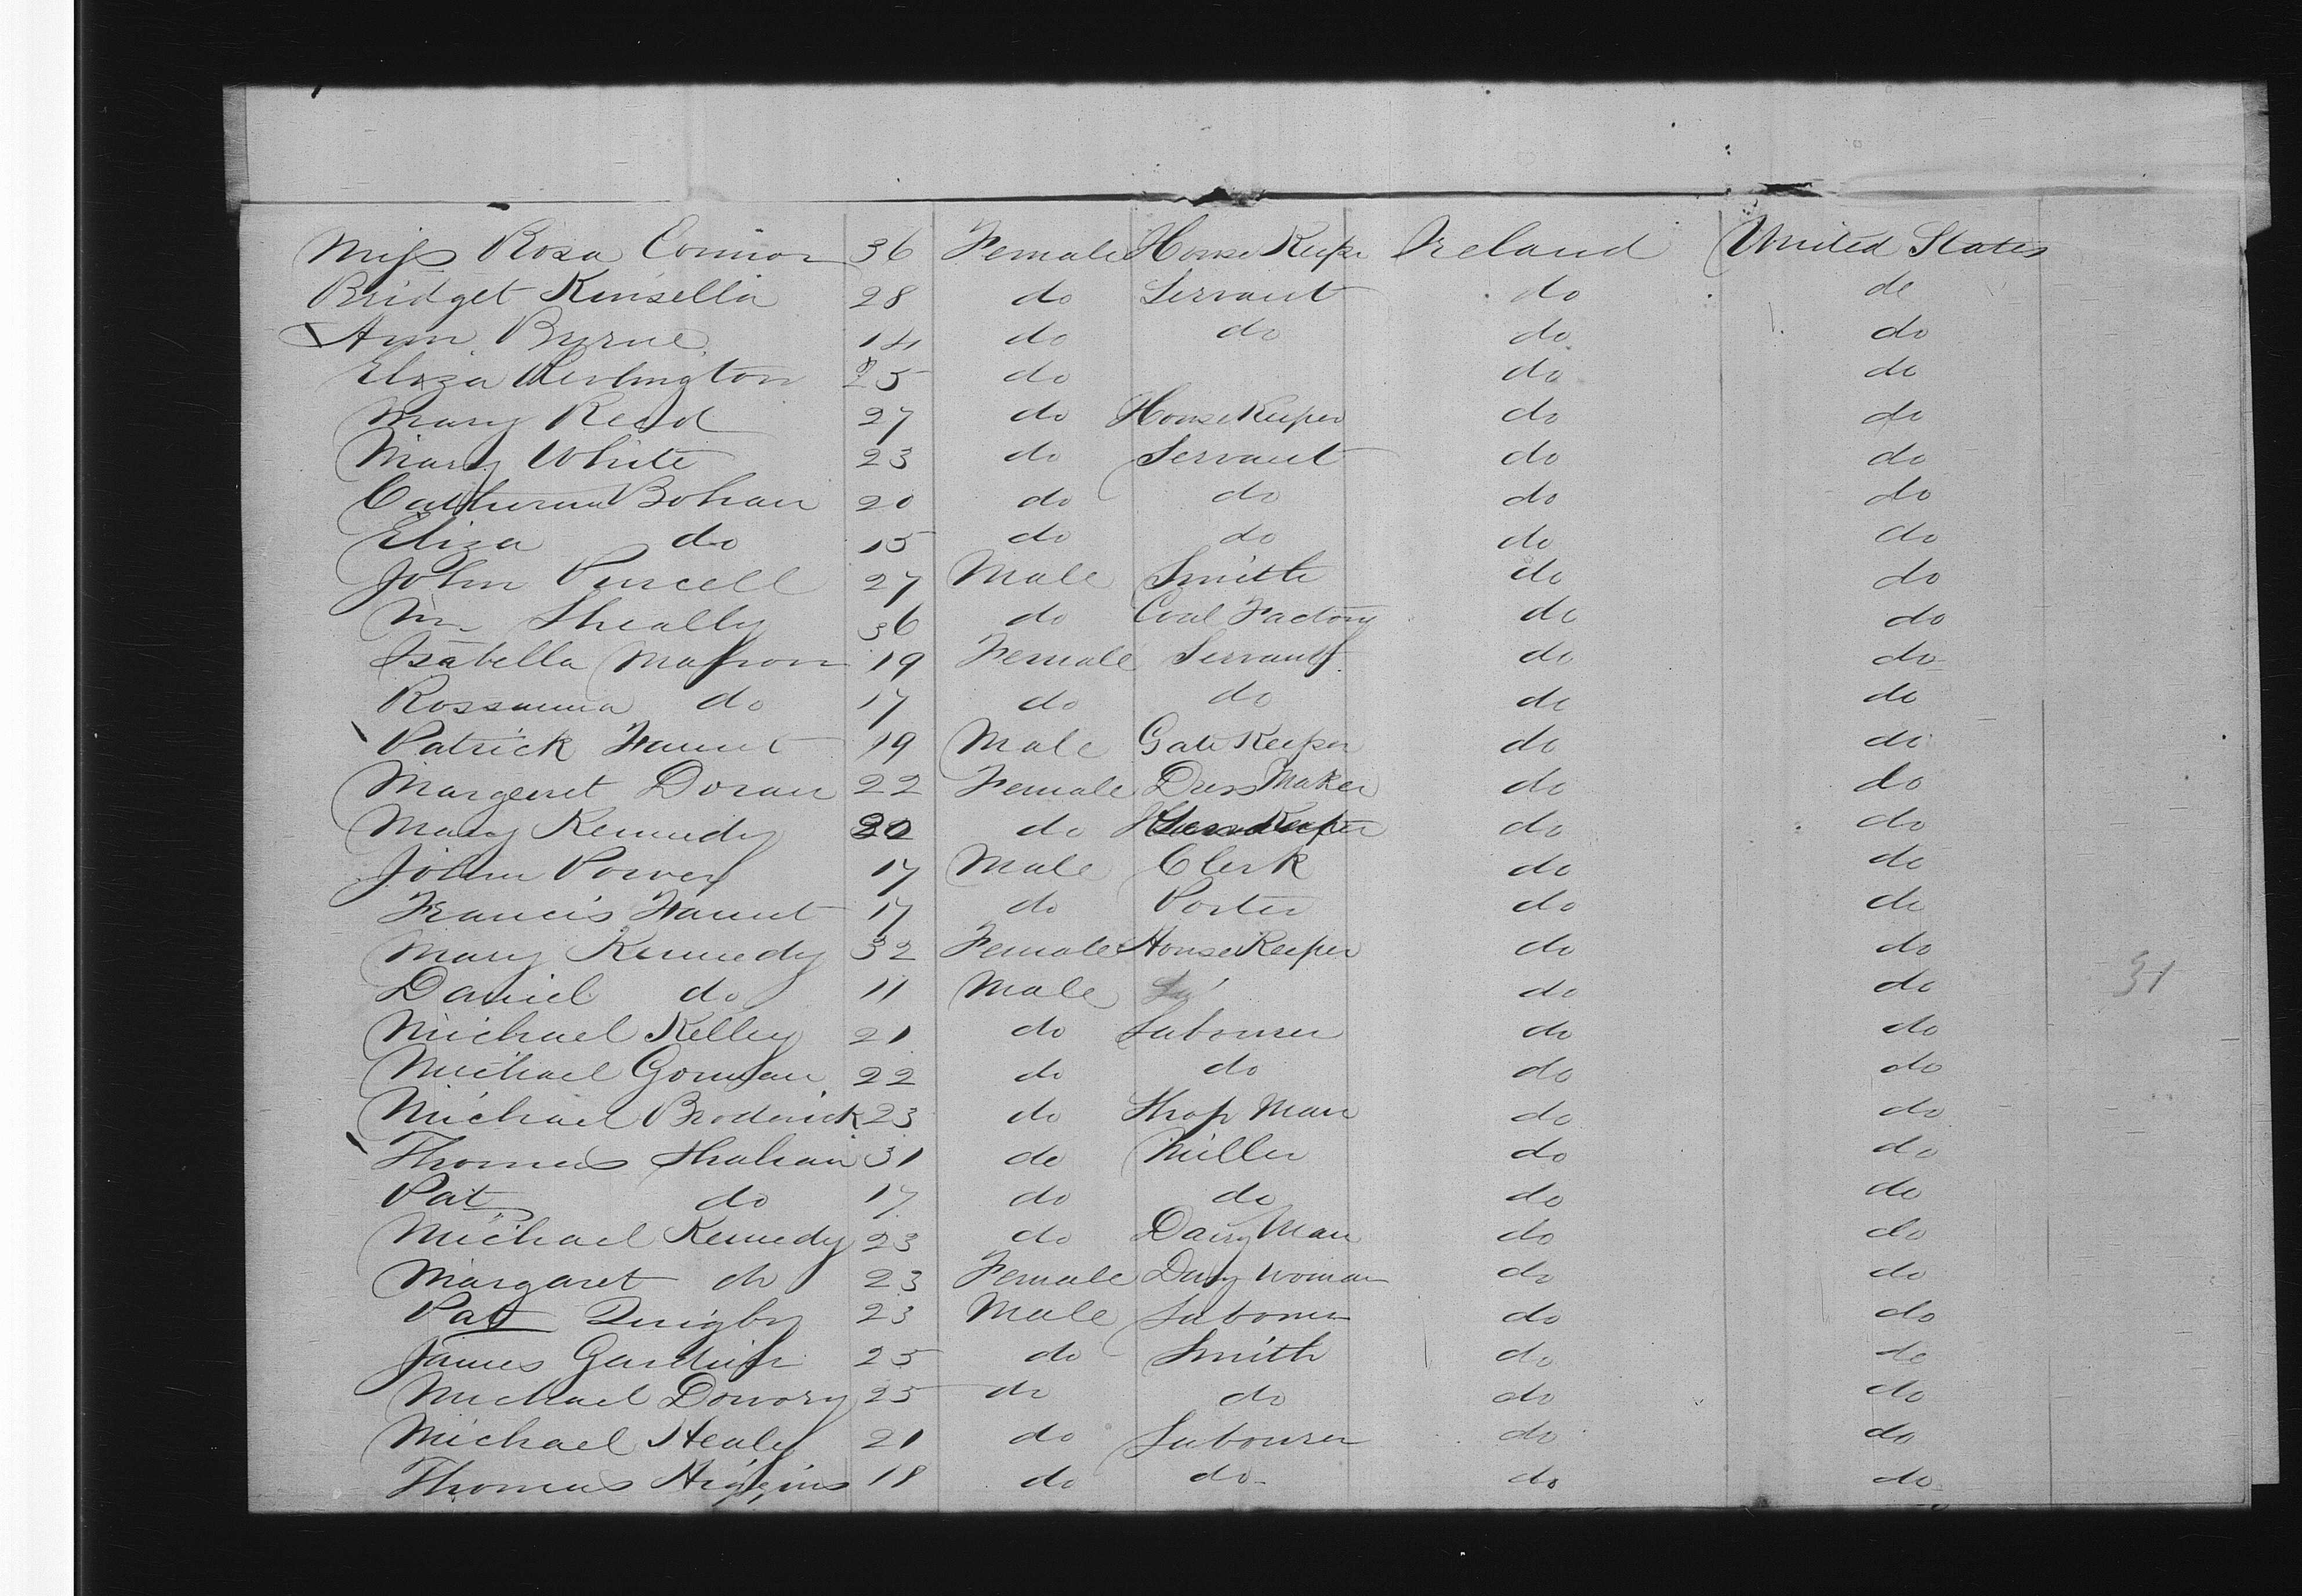 Miss Rosa Connor 36 Female House Keeper Ireland United States
Bridget Kinsella 28 do Servant do do
Ann Byrne 14 do do do do
Eliza 25 do do do
Mary Read 27 do House Keeper do do
Mary White 23 do Servant do do
Catherine Bohan 20 do do do do
Eliza do 15 do do do do
John Purcell 27 Male Smith do do
Wm Sheally 36 do Coal Factory do do
Isabella 19 Female Servant do do
Rossanna do 17 do do do do
Patrick Faunt 19 Male Gate Keeper do do
Margeret Doran 22 Female Dress Maker do do
Mary Kennedy 20 do do do
John Power 17 Male Clerk do do
Francis Faunt 17 do Porter do do
Mary Kennedy 32 Female House Keeper do do
Daniel do 11 Male do do 31
Michael Kelley 21 do Labourer do do
Michael Gorman 22 do do do do
Michael Broderick 23 do Shop Man do do
Thomas 31 do Miller do do
Pat do 17 do do do do
Michael Kennedy 23 do Dairy Man do do
Margaret do 23 Female Dairy Woman do do
Pat Quigby 23 Male Labourer do do
James 25 do Smith do do
Michael 25 do do do do
Michael Healy 21 do Labourer do do
Thomas Higgins 18 do do do do